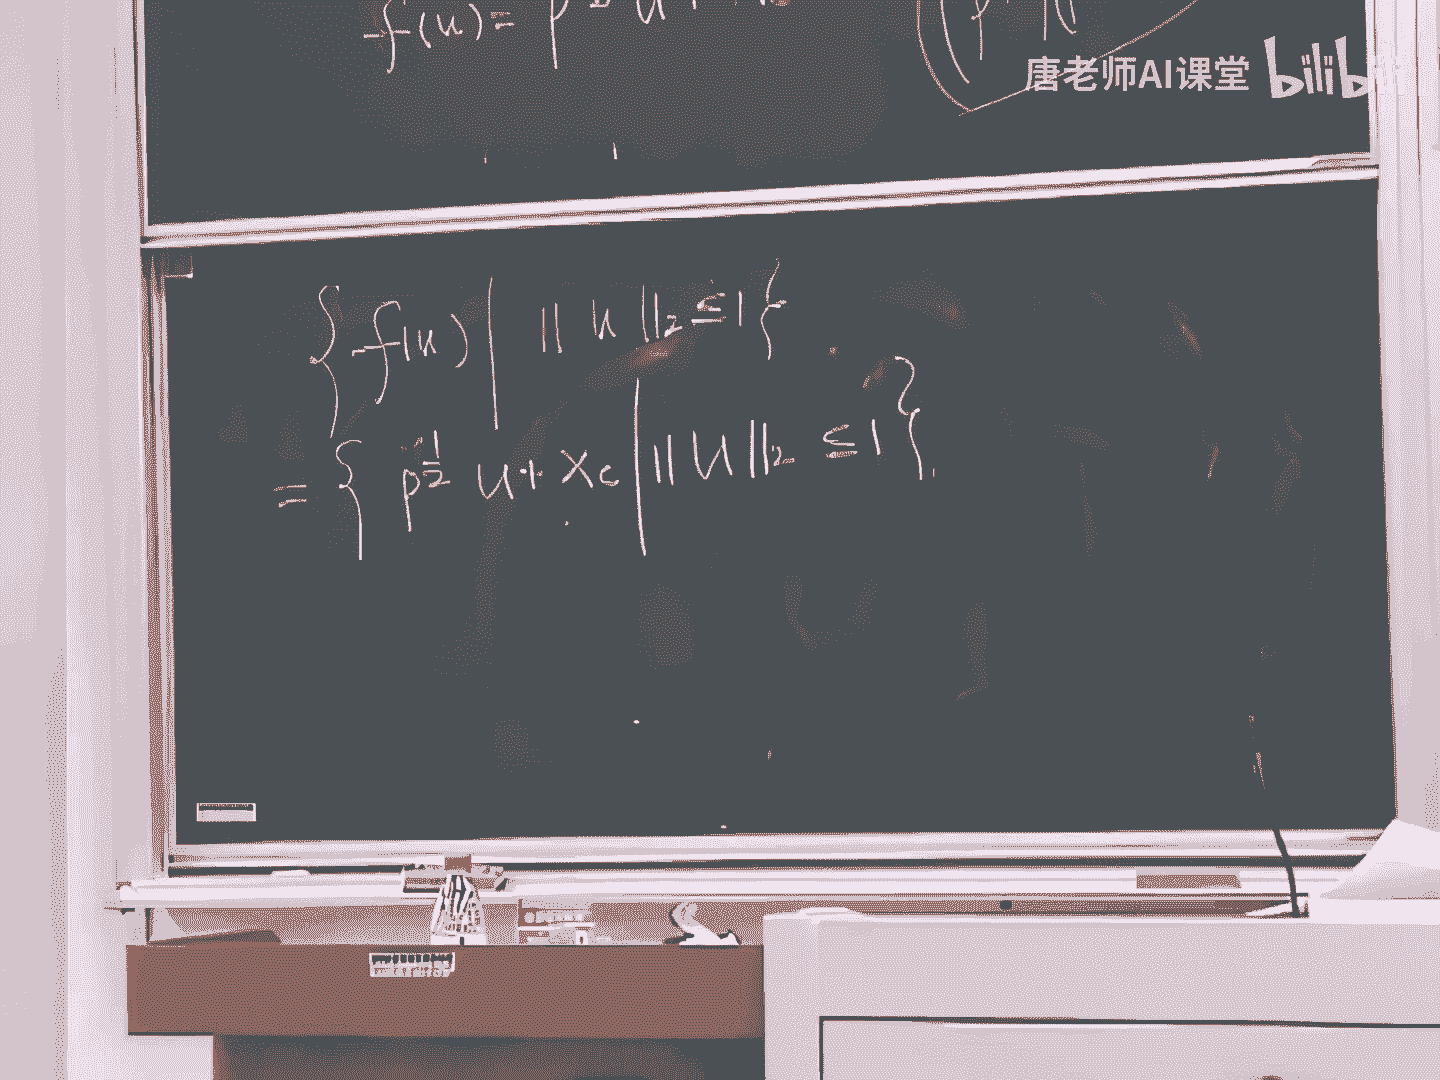 f(u)= P^{1/2} u +
唐老师AI课堂 bilibili
{ f(u) | ‖u‖₂ ≤ 1 }
= { P^{1/2} u + x_c | ‖u‖₂ ≤ 1 }